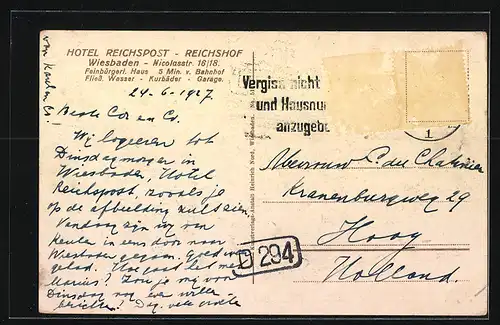 HOTEL REICHSPOST - REICHSHOF
Wiesbaden - Nicolasstr. 16/18.
Feinbürgerl. Haus 5 Min. v. Bahnhof
Fließ. Wasser - Kurbäder - Garage.
24-6-1927
Beste Cor en Co.
Wij logeeren tot
Dinsdagmorgen in
Wiesbaden, Hotel
Reichspost, zooals je
op de afbeelding zult zien.
Vandaag zijn wij van
Keulen in een door naar
Wiesbaden gegaan. Goed weer
gehad. Hoe gaat het met
Marius? Zou je mij voor
Dinsdag nog even willen
berichten? Dag, vele groeten
van
Vergiß nicht
und Hausnu
anzugebe
1
Mevrouw C. du Chatinier
Kranenburgweg 29
Haag
Holland.
D 294